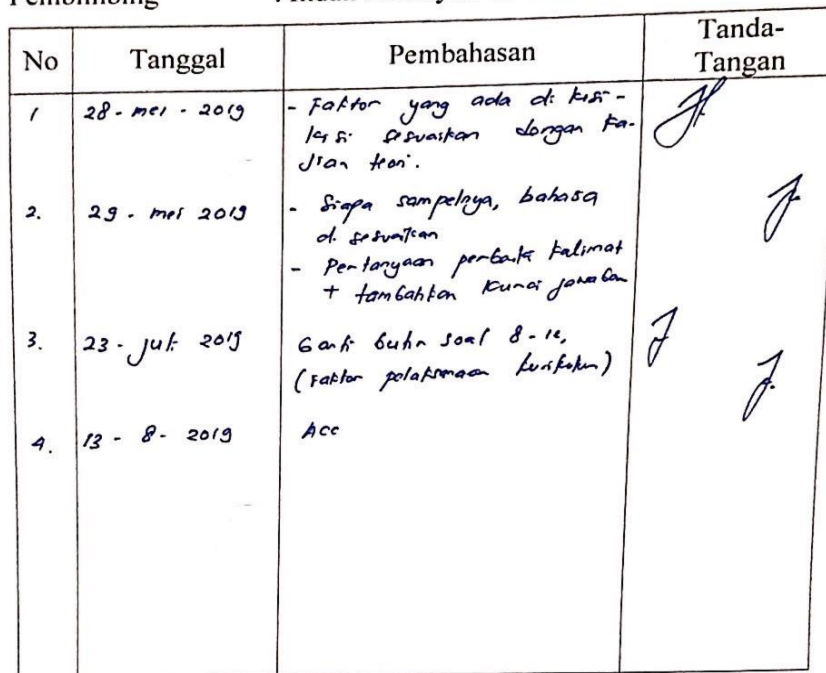 No Tanggal Pembahasan Tanda-
Tangan
1 28 - mei - 2019 - Faktor yang ada di kisi-
kisi sesuaikan dengan ka-
jian teori.
2. 29 - mei 2019 - Siapa sampelnya, bahasa
di sesuaikan
- Pertanyaan perbaiki kalimat
+ tambahkan kunci jawaban
3. 23 - juli 2019 Ganti butir soal
(Faktor pelaksanaan kurikulum)
4. 13 - 8 - 2019 Acc